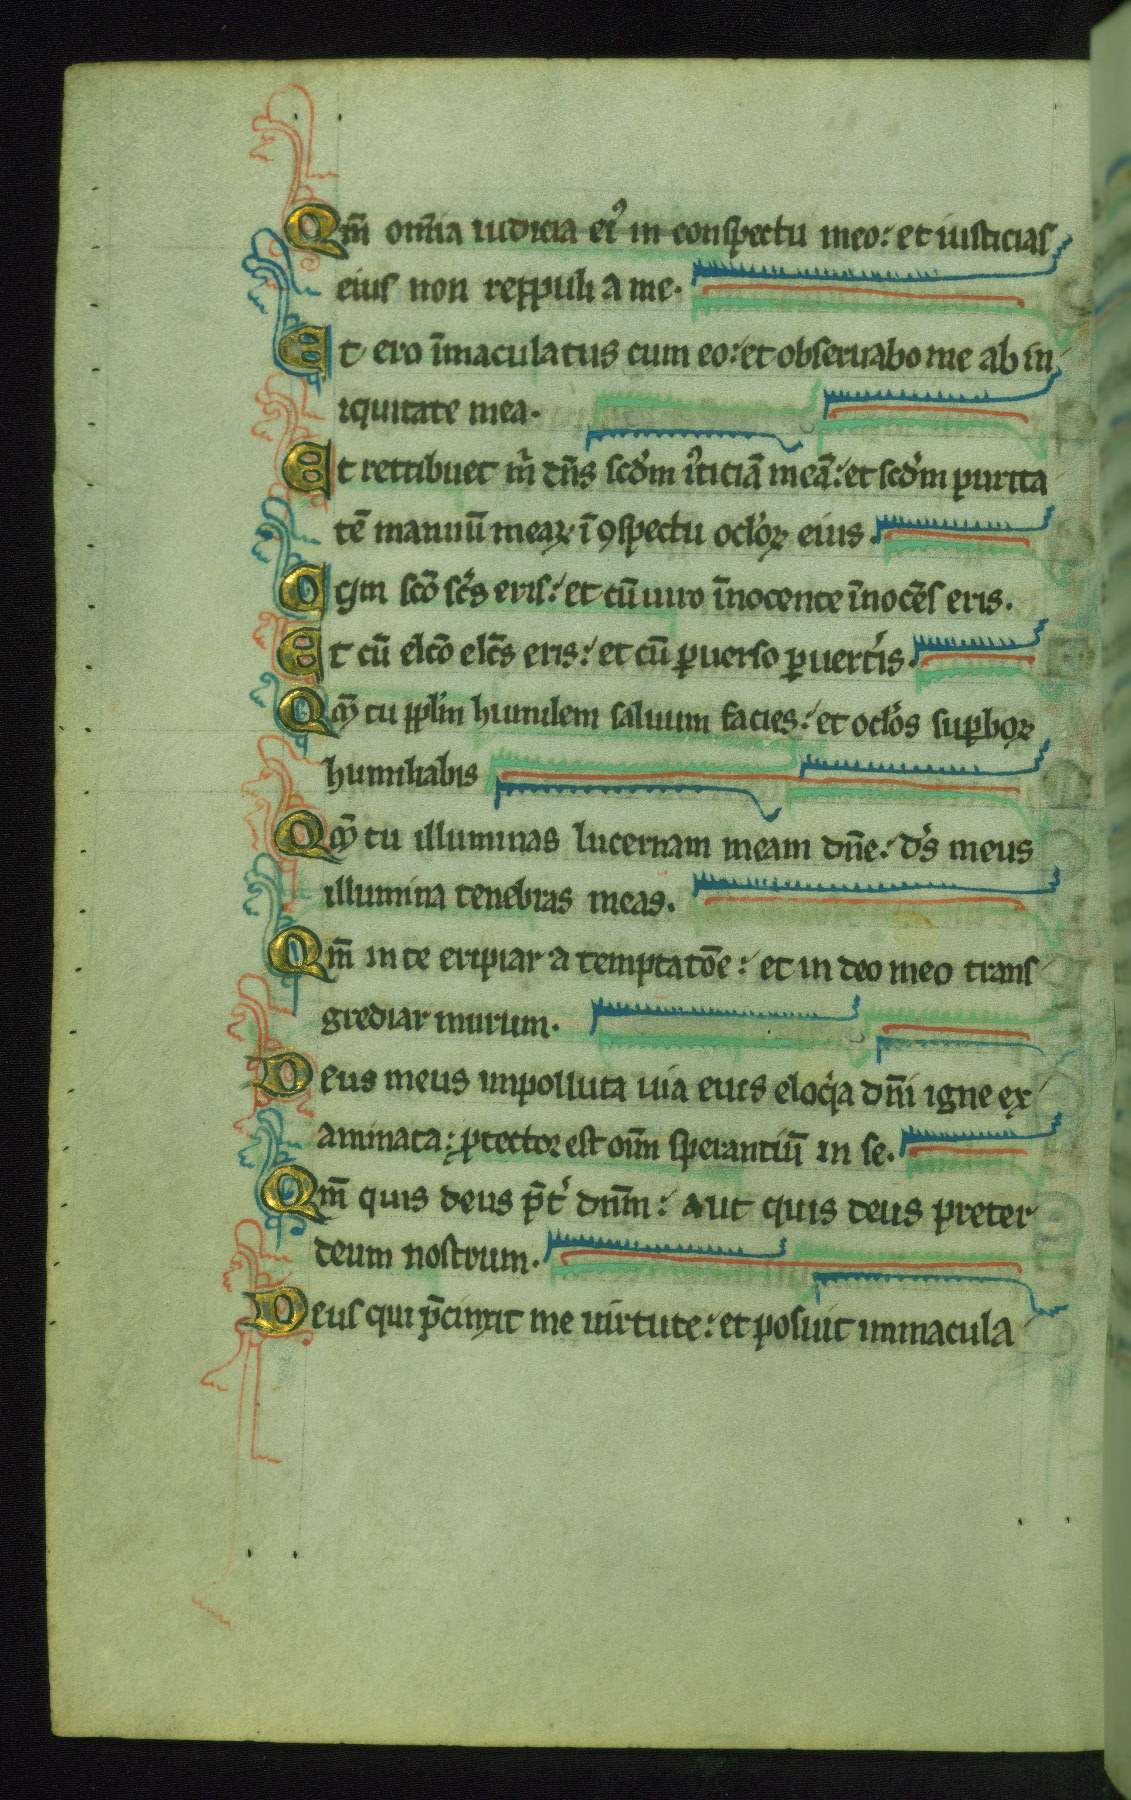 Qm̅ om̅ia iudicia ei᾽ in conspectu meo: et iusticias
eius non reppuli a me.
Et ero i̅maculatus cum eo: et obseruabo me ab in
iquitate mea.
Et retribuet m̅ dn̅s scd̅m i᾽ticia̅ mea̅: et scd̅m purita
te̅ manuu̅ meaꝝ i̅ ꝯspectu oclo̅ꝝ eius.
Cum sco̅ sc̅s eris: et cu̅ uiro i̅nocente i̅noce̅s eris.
Et cu̅ elco̅ elc̅s eris: et cu̅ ꝑuerso ꝑuert̅is.
Qm̅ tu pplm̅ humilem saluum facies: et oclo̅s suꝑboꝝ
humiliabis
Qm̅ tu illuminas lucernam meam dn̅e: ds̅ meus
illumina tenebras meas.
Qm̅ in te eripiar a temptato̅e: et in deo meo trans
grediar murum.
Deus meus impolluta uia eius eloq̅a dn̅i igne ex
aminata: ꝓtector est oim̅ sperantiu̅ in se.
Qm̅ quis deus p̅t᾽ dnm̅: aut quis deus preter
deum nostrum.
Deus qui p̅cinxit me uirtute: et posuit immacula